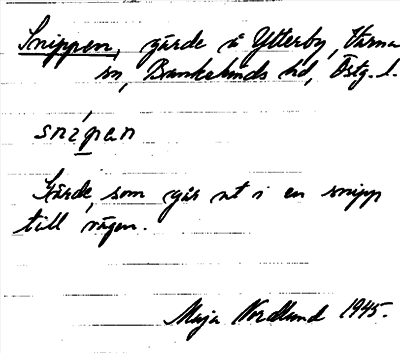 Snippen, gärde å Ytterby, Värna
sn, Bankekinds hd, Östg. l.
snípan
Gärde, som går ut i en snipp
till vägen.
Maja Nordlund 1945.